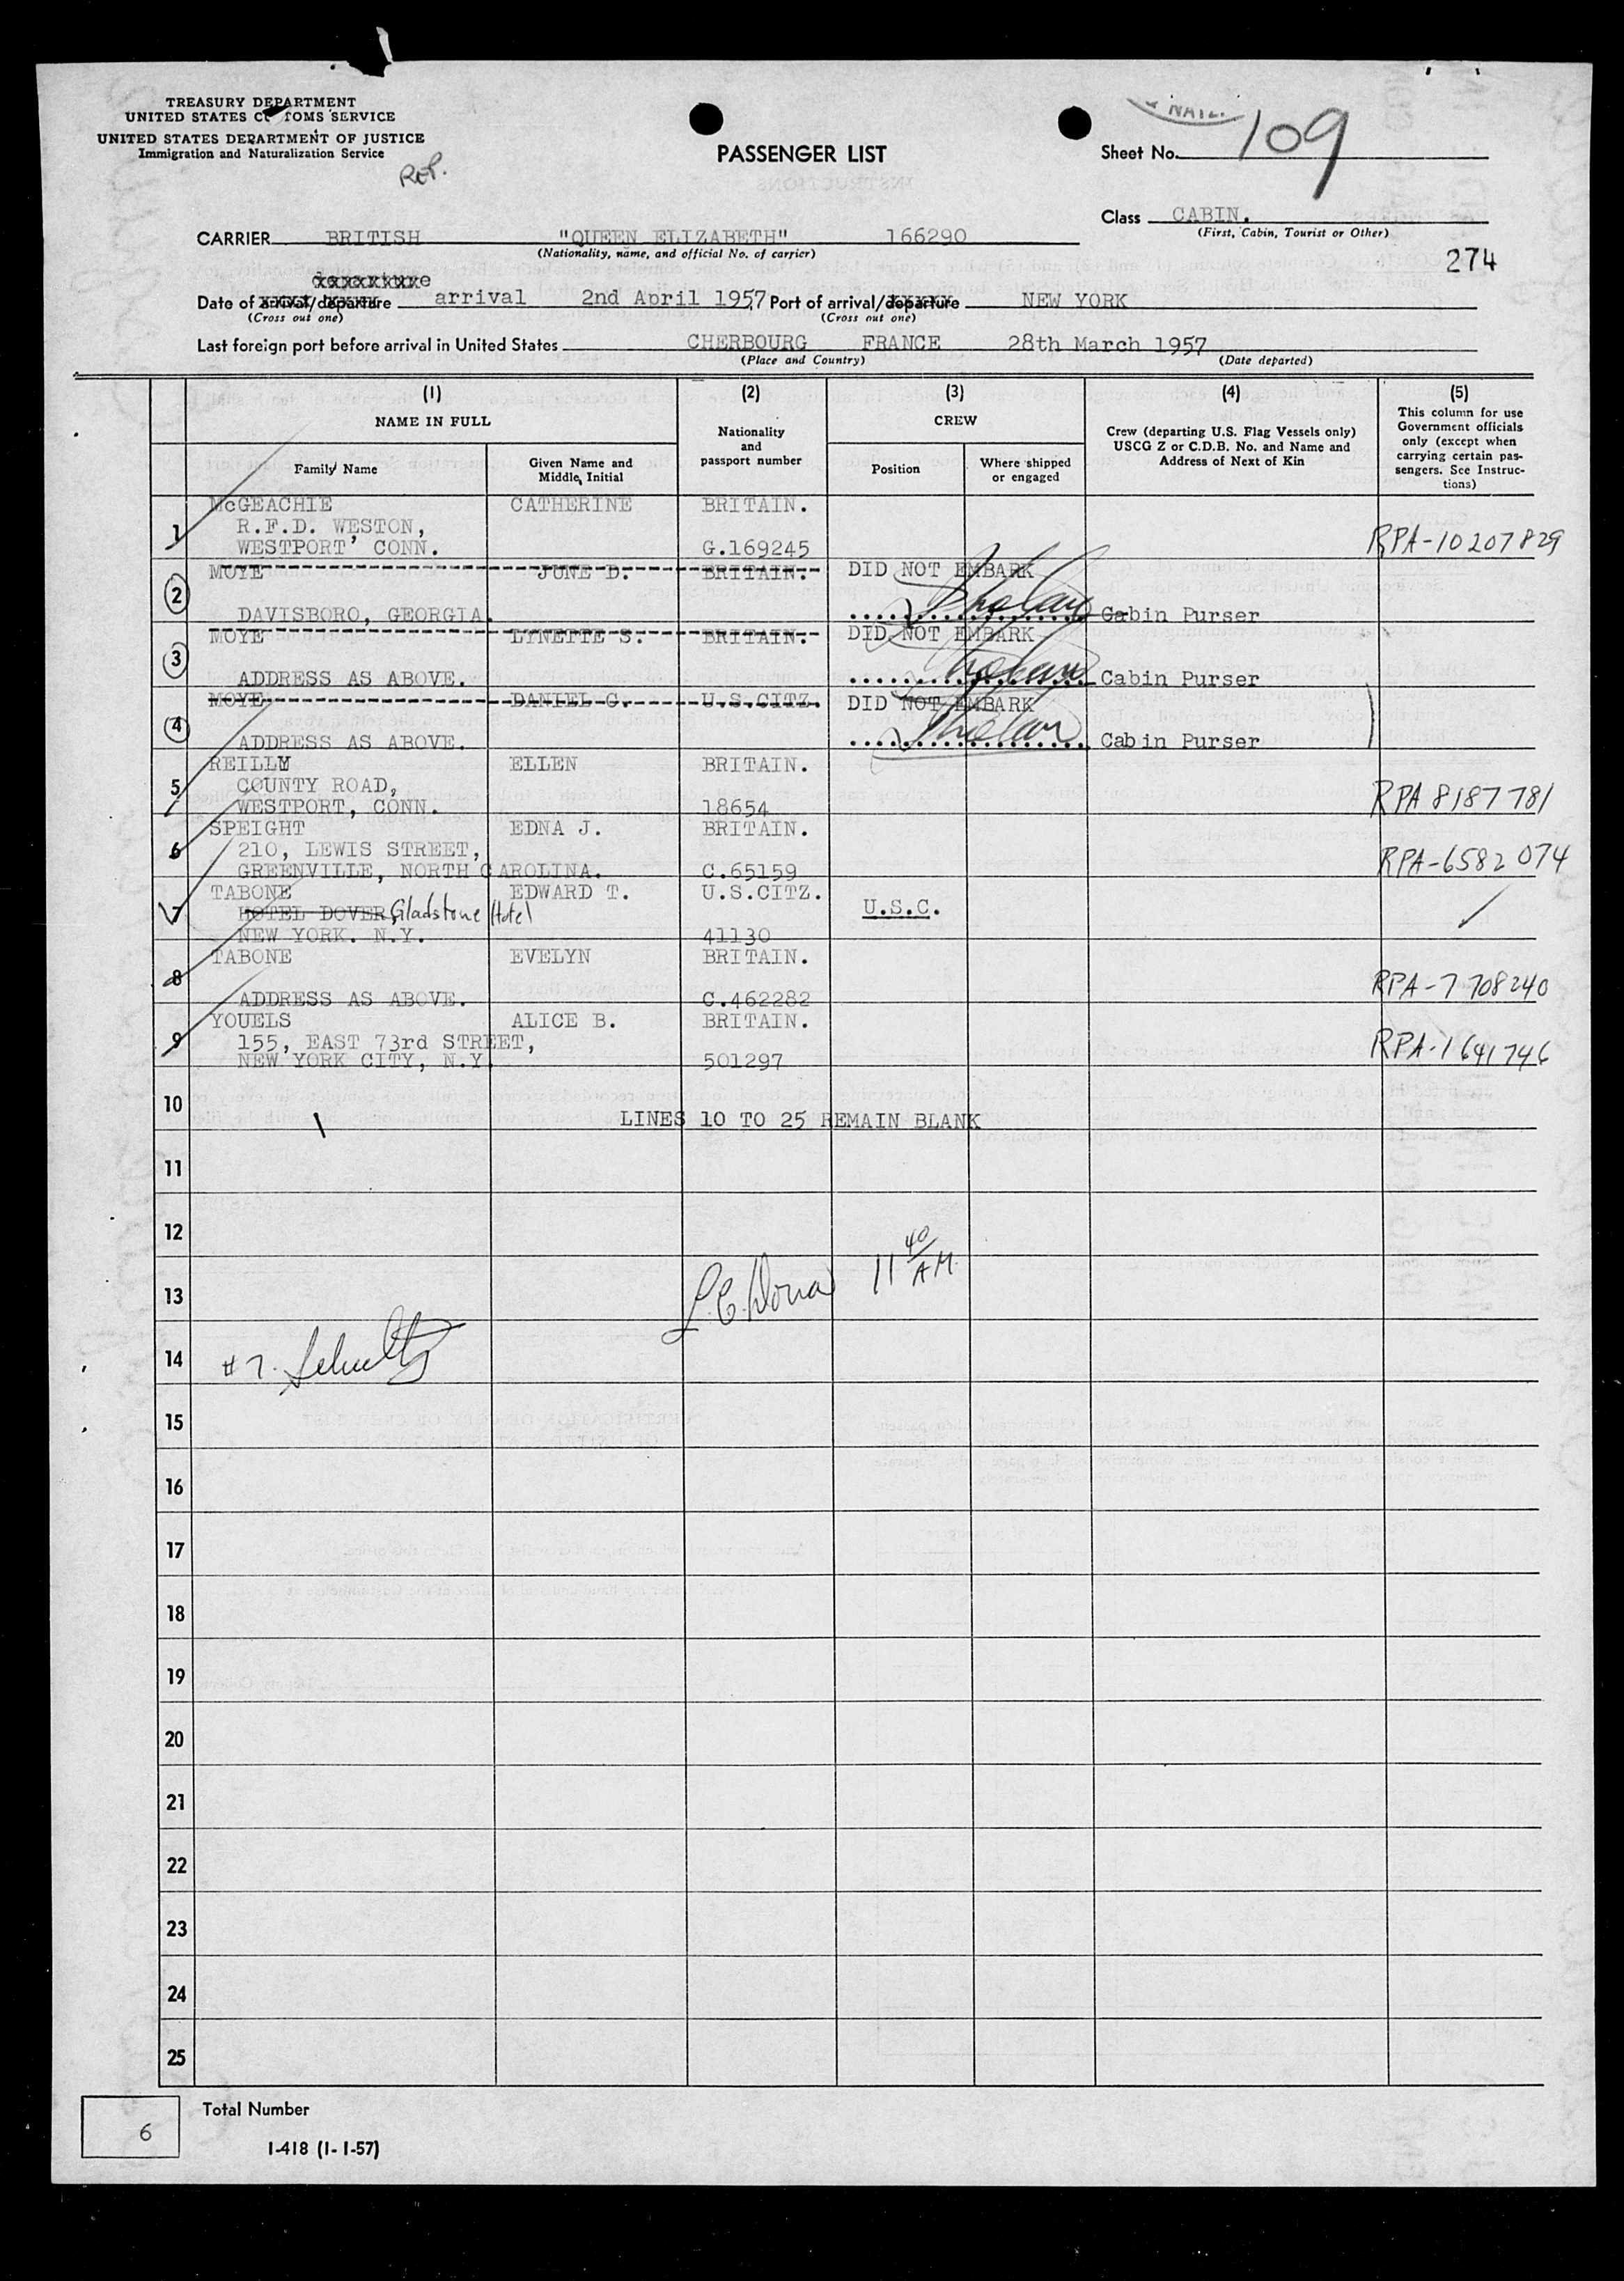 TREASURY DEPARTMENT
UNITED STATES CUSTOMS SERVICE
UNITED STATES DEPARTMENT OF JUSTICE
Immigration and Naturalization Service
REP.
PASSENGER LIST
Sheet No. 109
Class CABIN.
(First, Cabin, Tourist or Other)
CARRIER BRITISH "QUEEN ELIZABETH" 166290
(Nationality, name, and official No. of carrier)
274
Date of arrival/departure arrival 2nd April 1957 Port of arrival/departure NEW YORK
(Cross out one) (Cross out one)
Last foreign port before arrival in United States CHERBOURG FRANCE 28th March 1957
(Place and Country) (Date departed)
(1) (2) (3) (4) (5)
NAME IN FULL
Family Name
Given Name and
Middle Initial
Nationality
and
passport number
CREW
Position
Where shipped
or engaged
Crew (departing U.S. Flag Vessels only)
USCG Z or C.D.B. No. and Name and
Address of Next of Kin
This column for use
Government officials
only (except when
carrying certain pas-
sengers. See Instruc-
tions)
1 McGEACHIE CATHERINE BRITAIN.
R.F.D. WESTON,
WESTPORT' CONN. G.169245 RPA-10207829
2 MOYE JUNE D. BRITAIN. DID NOT EMBARK
DAVISBORO, GEORGIA. Cabin Purser
3 MOYE LYNETTE S. BRITAIN. DID NOT EMBARK
ADDRESS AS ABOVE. Cabin Purser
4 MOYE DANIEL C. U.S.CITZ. DID NOT EMBARK
ADDRESS AS ABOVE. Cabin Purser
5 REILLY ELLEN BRITAIN.
COUNTY ROAD,
WESTPORT, CONN. 18654 RPA 8187781
6 SPEIGHT EDNA J. BRITAIN.
210, LEWIS STREET,
GREENVILLE, NORTH CAROLINA. C.65159 RPA-6582074
7 TABONE EDWARD T. U.S.CITZ.
HOTEL DOVER, Gladstone Hotel U.S.C.
NEW YORK. N.Y. 41130
8 TABONE EVELYN BRITAIN.
ADDRESS AS ABOVE. C.462282 RPA-7708240
9 YOUELS ALICE B. BRITAIN.
155, EAST 73rd STREET,
NEW YORK CITY, N.Y. 501297 RPA-1641746
10 LINES 10 TO 25 REMAIN BLANK
11
12
13 11 40 AM
14 #7. Schultz
15
16
17
18
19
20
21
22
23
24
25
6 Total Number
I-418 (1-1-57)